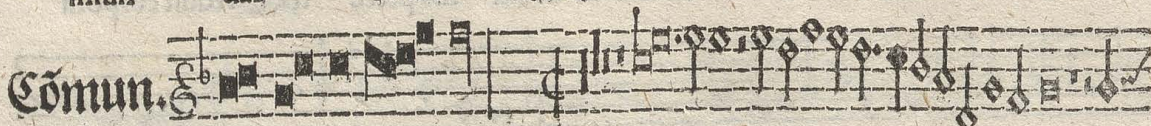 Cõmun.